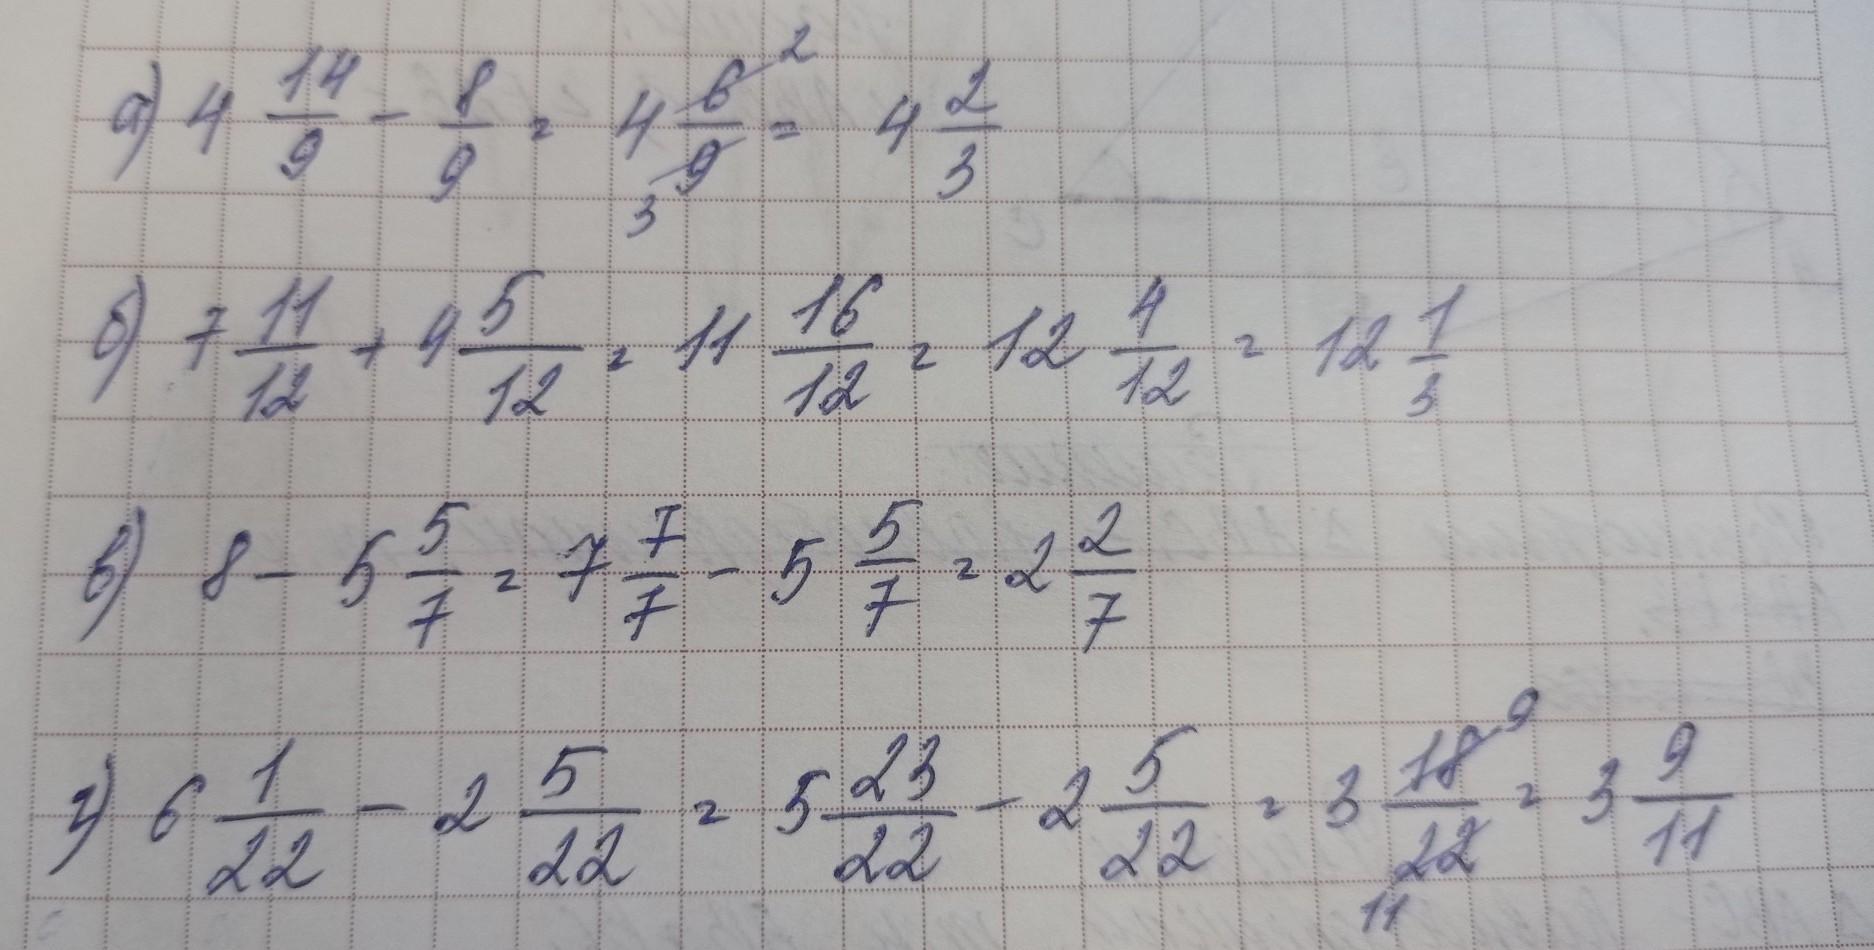 а) 4 14/9 - 8/9 = 4 6/9 = 4 2/3
б) 7 11/12 + 4 5/12 = 11 16/12 = 12 4/12 = 12 1/3
в) 8 - 5 5/7 = 7 7/7 - 5 5/7 = 2 2/7
г) 6 1/22 - 2 5/22 = 5 23/22 - 2 5/22 = 3 18/22 = 3 9/11